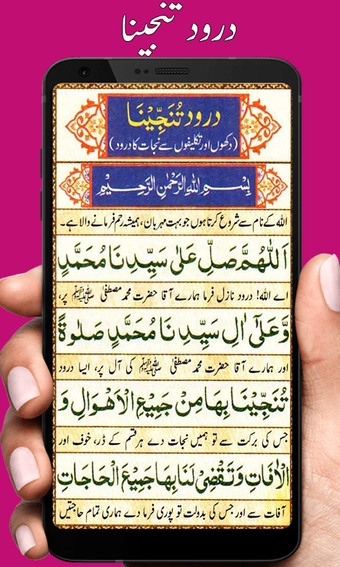 درود تنجینا
درود تُنَجِّيْنَا
(دکھوں اور تکلیفوں سے نجات کا درود)
بِسْمِ اللهِ الرَّحْمٰنِ الرَّحِيْمِ
اللہ کے نام سے شروع کرتا ہوں جو بہت مہربان، ہمیشہ رحم فرمانے والا ہے۔
اَللّٰهُمَّ صَلِّ عَلٰى سَيِّدِنَا مُحَمَّدٍ
اے اللہ! درود نازل فرما ہمارے آقا حضرت محمد مصطفیٰ ﷺ پر،
وَّعَلٰٓى اٰلِ سَيِّدِنَا مُحَمَّدٍ صَلٰوةً
اور ہمارے آقا حضرت محمد مصطفیٰ ﷺ کی آل پر، ایسا درود
تُنَجِّيْنَا بِهَا مِنْ جَمِيْعِ الْاَهْوَالِ وَ
جس کی برکت سے تو ہمیں نجات دے ہر قسم کے ڈر، خوف اور
الْاٰفَاتِ وَتَقْضِىْ لَنَا بِهَا جَمِيْعَ الْحَاجَاتِ
آفات سے اور جس کی بدولت تو پوری فرما دے ہماری تمام حاجتیں